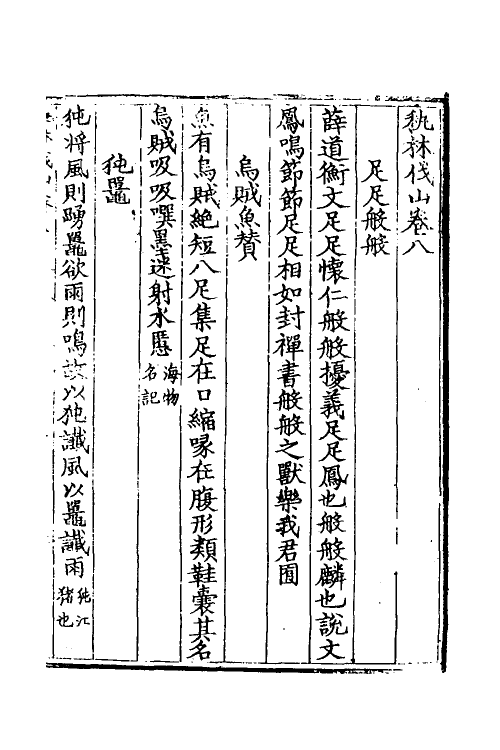 秇林伐山卷八
足足般般
薛道衡文足足懷仁般般擾義足足鳳也般般麟也說文
鳳鳴節節足足相如封禪書般般之獸樂我君囿
烏賊魚贊
魚有烏賊絶短八足集足在口縮喙在腹形類鞋囊其名
烏賊吸吸噀墨迷射水慝海物名記
㹠鼉
㹠將風則踴鼉欲雨則鳴故以㹠讖風以鼉讖雨㹠江猪也